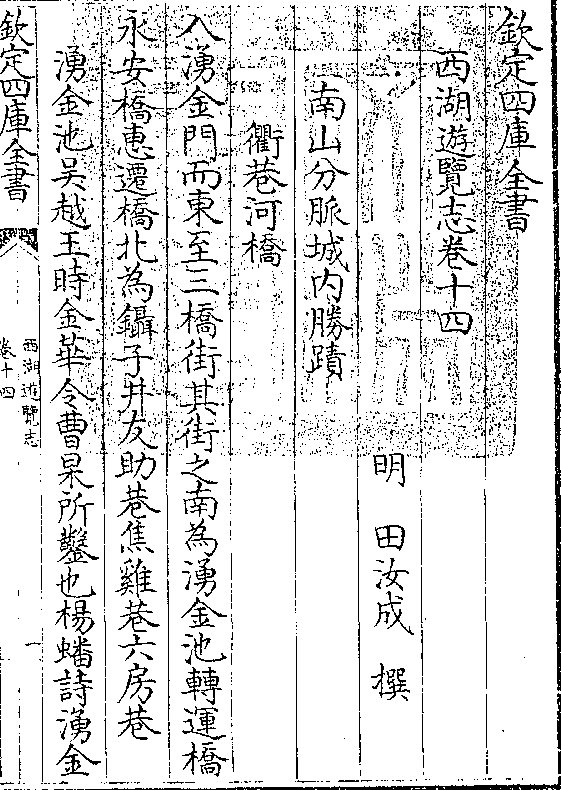 欽定四庫全書
西湖遊覽志卷十四
明 田汝成 撰
南山分脈城內勝蹟
衢巷河橋
入湧金門而東至三橋街其街之南為湧金池轉運橋
永安橋惠遷橋北為鑷子井友助巷焦雞巷六房巷
湧金池吳越王時金華令曹杲所鑿也楊蟠詩湧金
欽定四庫全書
西湖遊覽志
卷十四
一